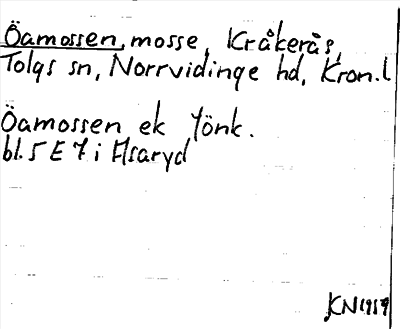 Öamossen, mosse, Kråkerås,
Tolgs sn, Norrvidinge hd, Kron.l
Öamossen ek Jönk.
bl. 5 E 7 i Asaryd
KN 1959